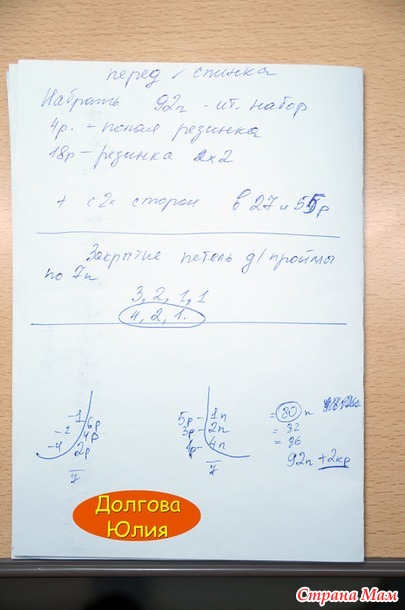 перед / спинка
Набрать 92п - ит. набор
4р. - полая резинка
18р - резинка 2х2
+ с 2х сторон в 27 и 55р
Закрытие петель д/проймы
по 7п
3, 2, 1, 1
4, 2, 1.
-1 6р
-2 4р
-4 2р
7
5р - 1п
3р - 2п
1р - 4п
7
= 80 п
= 82
= 86
92п + 2кр
Долгова
Юлия
Страна Мам